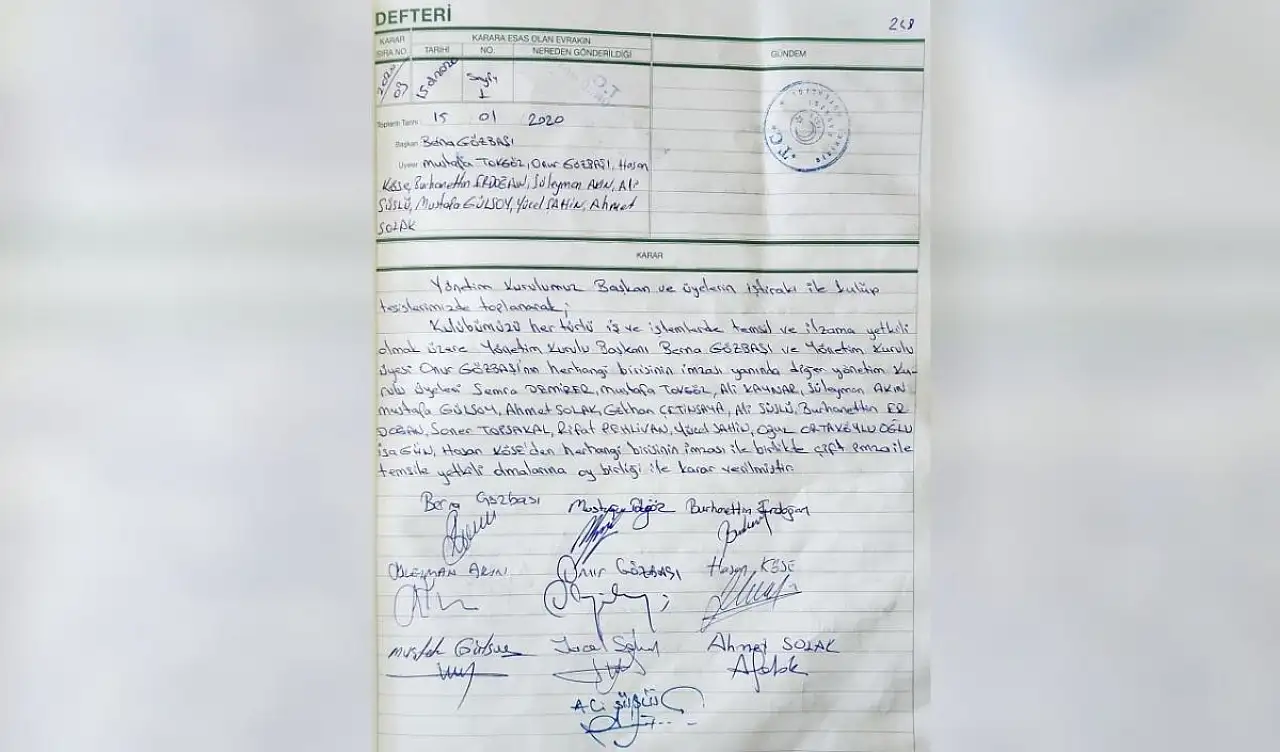 DEFTERİ
248
KARAR
SIRA NO.
KARARA ESAS OLAN EVRAKIN
TARİHİ
NO.
NEREDEN GÖNDERİLDİĞİ
GÜNDEM
2020/03
15.01.2020
Sayfı
1
T.C.
Toplantı Tarihi 15 01 2020
Başkan Berna GÖZBAŞI
Üyeler Mustafa TOKGÖZ, Onur GÖZBAŞI, Hasan
KÖSE, Burhanettin ERDOĞAN, Süleyman AKIN, Ali
SÜSLÜ, Mustafa GÜLSOY, Yücel ŞAHİN, Ahmet
SOLAK
KARAR
Yönetim Kurulumuz Başkan ve üyelerin iştiraki ile kulüp
tesislerimizde toplanarak;
Kulübümüzü her türlü iş ve işlemlerde temsil ve ilzama yetkili
olmak üzere Yönetim Kurulu Başkanı Berna GÖZBAŞI ve Yönetim Kurulu
üyesi Onur GÖZBAŞI'nın herhangi birisinin imzası yanında diğer yönetim Ku-
rulu üyeleri Semra DEMİRER, Mustafa TOKGÖZ, Ali KAYNAR, Süleyman AKIN
Mustafa GÜLSOY, Ahmet SOLAK, Gökhan ÇETİNSAYA, Ali SÜSLÜ, Burhanettin ER
DOĞAN, Soner TOPSAKAL, Rifat PEHLİVAN, Yücel ŞAHİN, Oğuz ORTAKÖYLU OĞLU
İsa GÜN, Hasan KÖSE'den herhangi birisinin imzası ile birlikte çift imza ile
temsile yetkili olmalarına oy birliği ile karar verilmiştir.
Berna Gözbaşı Mustafa Tokgöz Burhanettin Erdoğan
SÜLEYMAN AKIN Onur GÖZBAŞI Hasan KÖSE
Mustafa Gülsoy Yücel Şahin Ahmet SOLAK
Ali SÜSLÜ